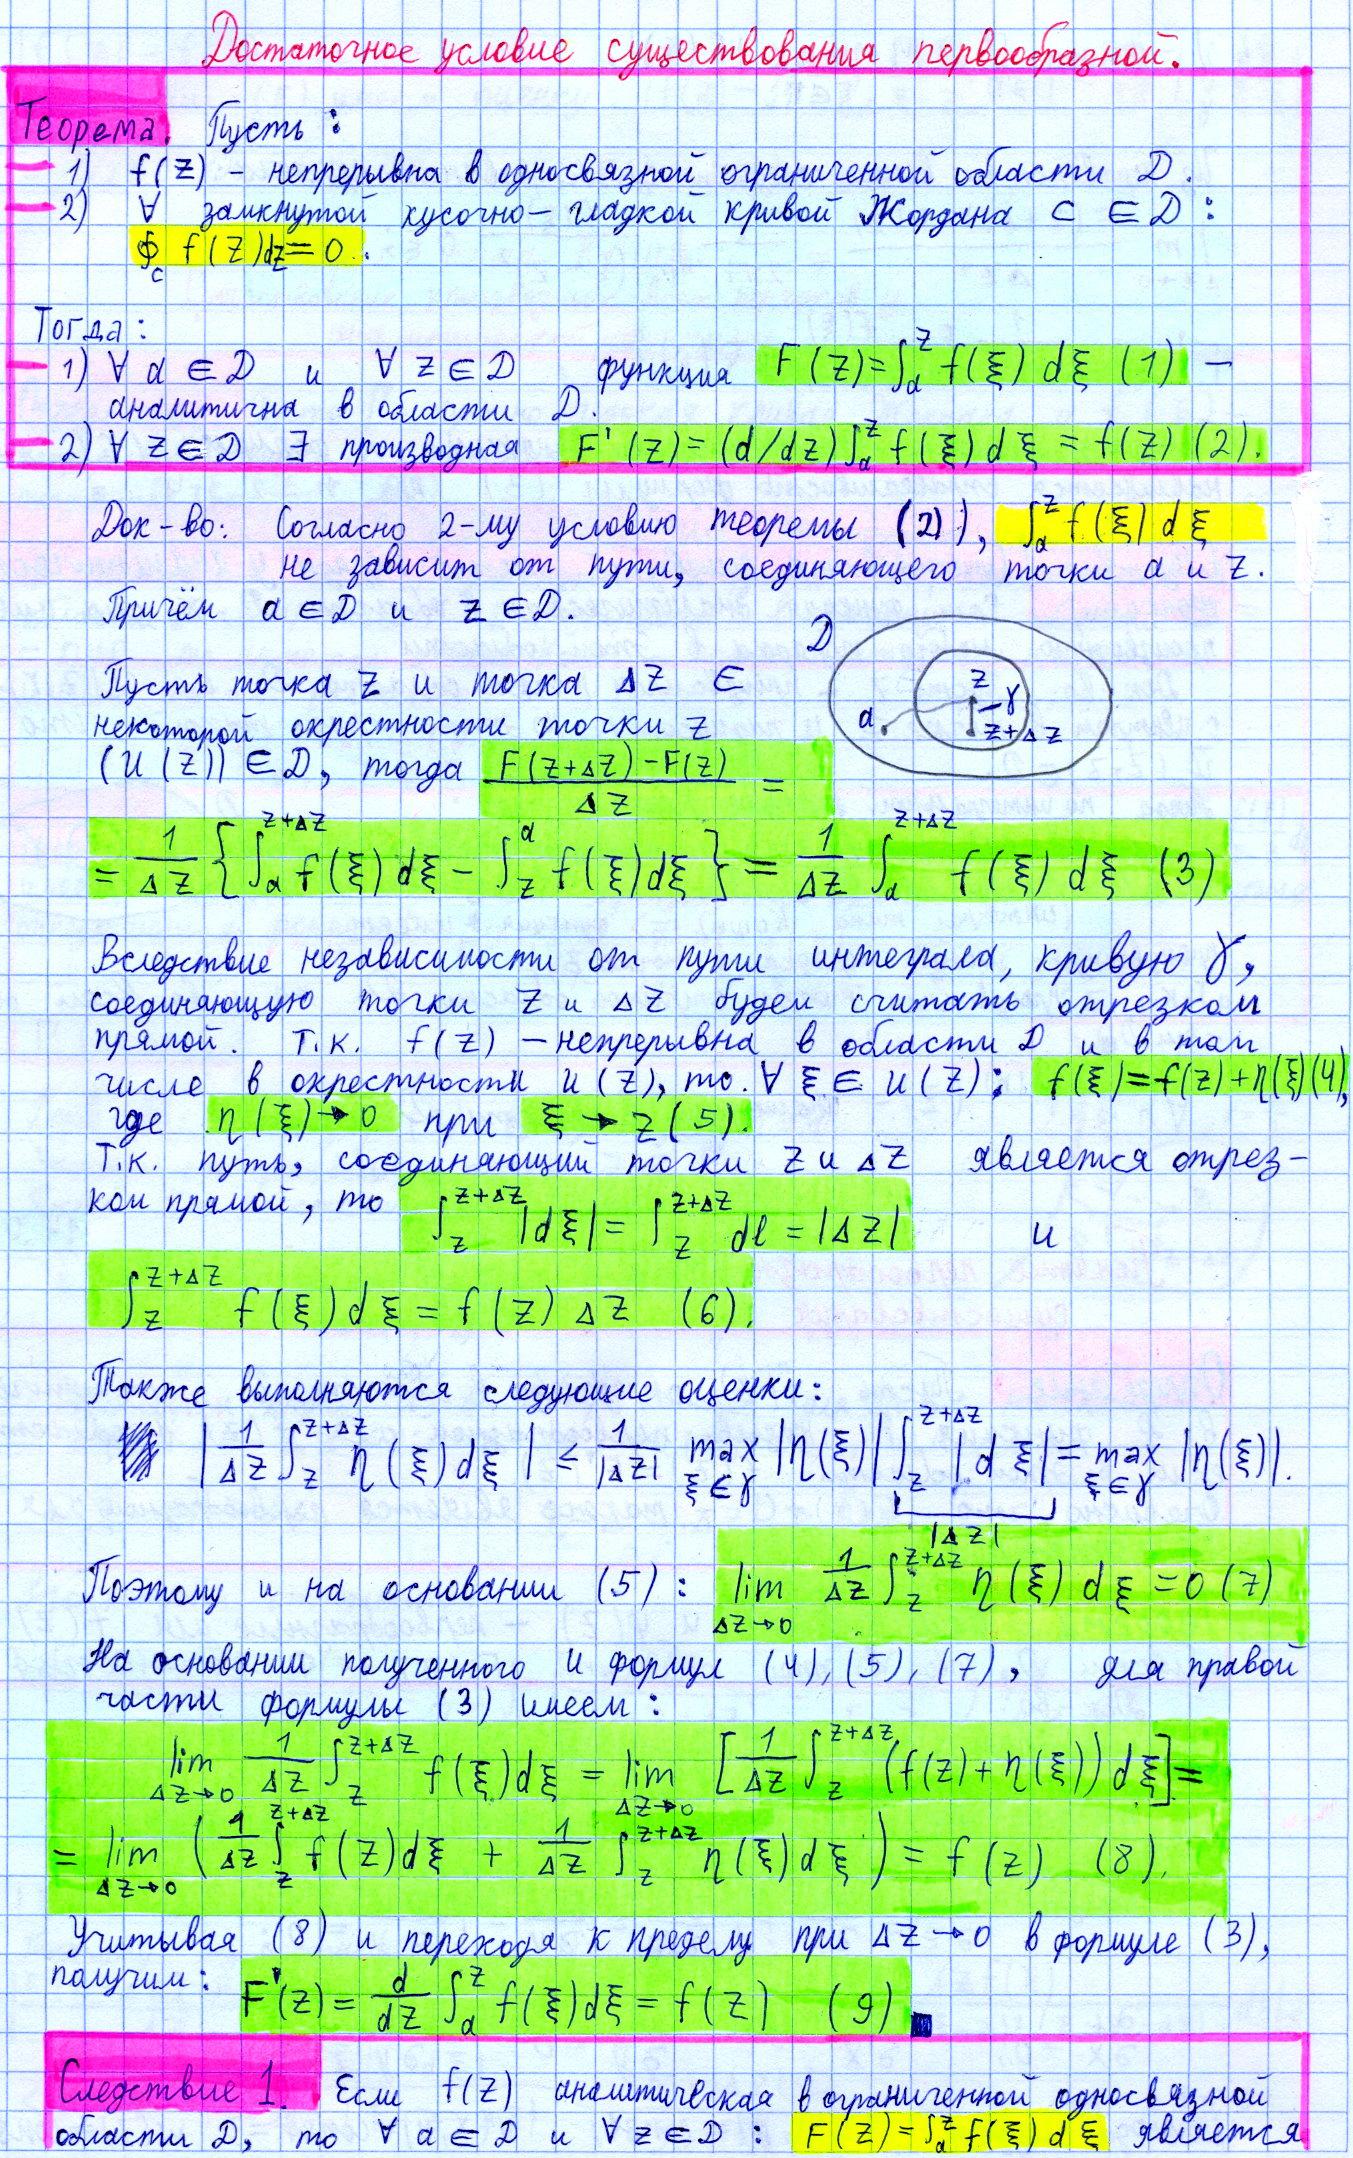 Достаточное условие существования первообразной.
Теорема. Пусть:
1) f(z) – непрерывна в односвязной ограниченной области D.
2) ∀ замкнутой кусочно-гладкой кривой Жордана C ∈ D:
∮_C f(z)dz = 0.
Тогда:
1) ∀ α ∈ D и ∀ z ∈ D функция F(z) = ∫_α^z f(ξ) dξ (1) –
аналитична в области D.
2) ∀ z ∈ D ∃ производная F'(z) = (d/dz) ∫_α^z f(ξ) dξ = f(z) (2).
Док-во: Согласно 2-му условию теоремы (2), ∫_α^z f(ξ) dξ
не зависит от пути, соединяющего точки α и z.
Причём α ∈ D и z ∈ D.
D
z
γ
α
z+Δz
Пусть точка z и точка Δz ∈
некоторой окрестности точки z
(U(z)) ∈ D, тогда (F(z+Δz) – F(z))/Δz =
= 1/Δz {∫_α^{z+Δz} f(ξ) dξ – ∫_z^α f(ξ) dξ} = 1/Δz ∫_α^{z+Δz} f(ξ) dξ (3)
Вследствие независимости от пути интеграла, кривую γ,
соединяющую точки z и Δz будем считать отрезком
прямой. Т.к. f(z) – непрерывна в области D и в том
числе в окрестности U(z), то ∀ ξ ∈ U(z): f(ξ) = f(z) + η(ξ) (4),
где η(ξ) → 0 при ξ → z (5).
Т.к. путь, соединяющий точки z и Δz является отрез-
ком прямой, то ∫_z^{z+Δz} |dξ| = ∫_z^{z+Δz} dl = |Δz| и
∫_z^{z+Δz} f(ξ) dξ = f(z) Δz (6).
Также выполняются следующие оценки:
|1/Δz ∫_z^{z+Δz} η(ξ) dξ| ≤ 1/|Δz| max_{ξ∈γ} |η(ξ)| ∫_z^{z+Δz} |dξ| = max_{ξ∈γ} |η(ξ)|.
|Δz|
Поэтому и на основании (5): lim_{Δz→0} 1/Δz ∫_z^{z+Δz} η(ξ) dξ = 0 (7)
На основании полученного и формул (4), (5), (7), для правой
части формулы (3) имеем:
lim_{Δz→0} 1/Δz ∫_z^{z+Δz} f(ξ) dξ = lim_{Δz→0} [1/Δz ∫_z^{z+Δz} (f(z) + η(ξ)) dξ] =
= lim_{Δz→0} (1/Δz ∫_z^{z+Δz} f(z) dξ + 1/Δz ∫_z^{z+Δz} η(ξ) dξ) = f(z) (8).
Учитывая (8) и переходя к пределу при Δz → 0 в формуле (3),
получим: F'(z) = d/dz ∫_α^z f(ξ) dξ = f(z) (9)
Следствие 1. Если f(z) аналитическая в ограниченной односвязной
области D, то ∀ α ∈ D и ∀ z ∈ D: F(z) = ∫_α^z f(ξ) dξ является